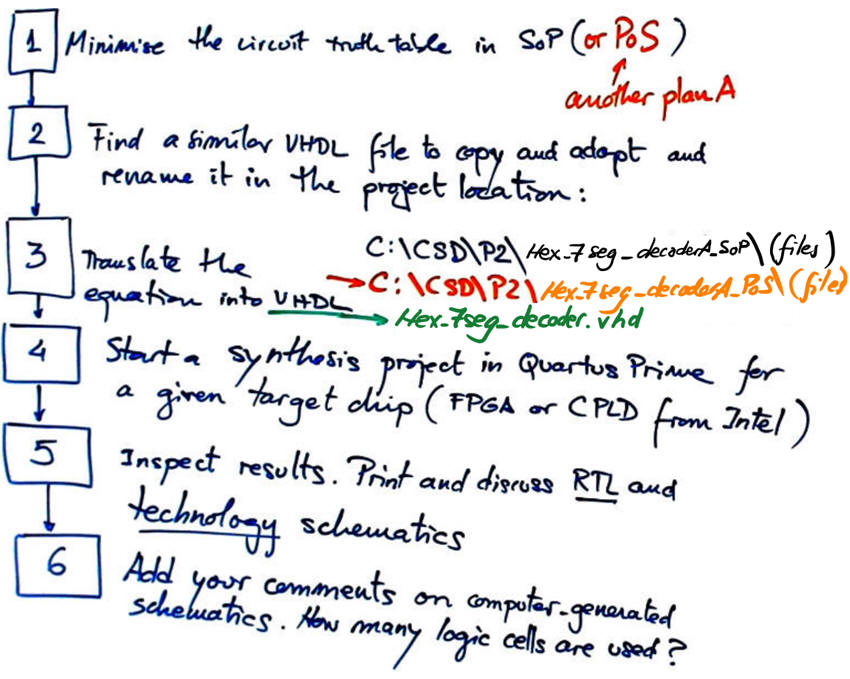 1 Minimise the circuit truth table in SoP (or PoS)
another plan A
2 Find a similar VHDL file to copy and adapt and
rename it in the project location:
C:\CSD\P2\Hex_7seg_decoderA_SoP\(files)
3 Translate the
C:\CSD\P2\Hex_7seg_decoderA_PoS\(file)
equation into VHDL
Hex_7seg_decoder.vhd
4 Start a synthesis project in Quartus Prime for
a given target chip (FPGA or CPLD from Intel)
5 Inspect results. Print and discuss RTL and
technology schematics
6 Add your comments on computer-generated
schematics. How many logic cells are used?